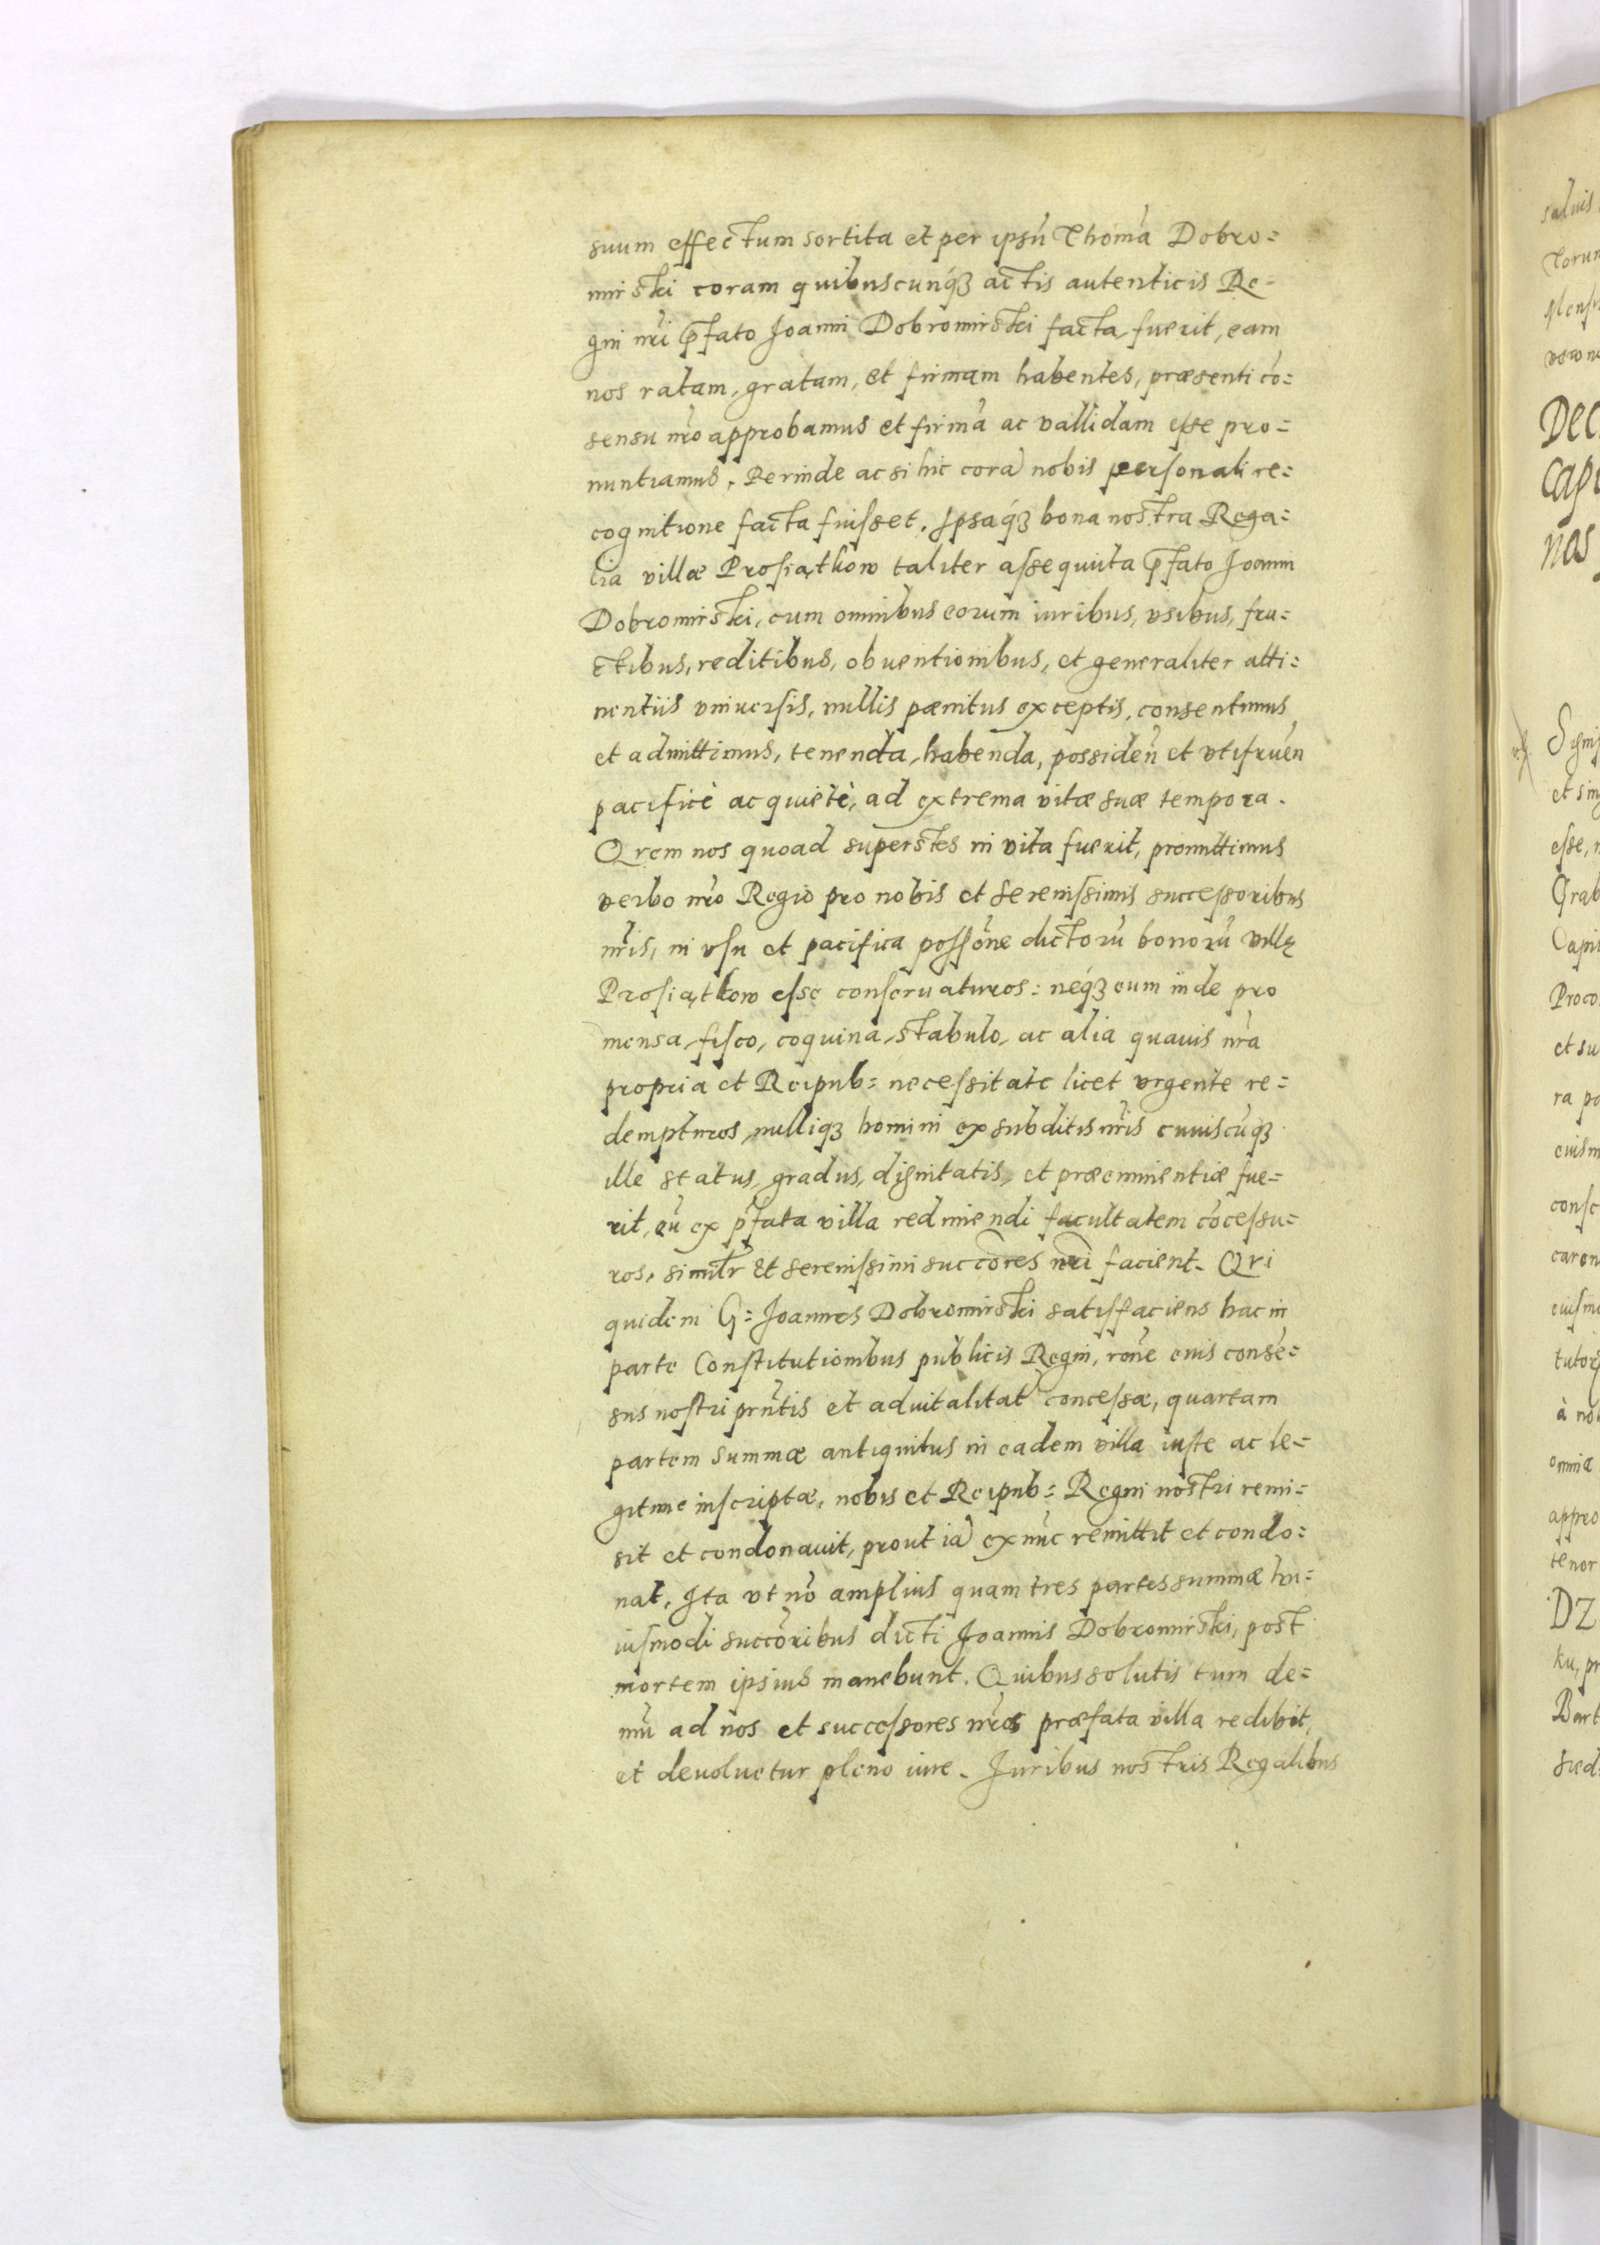 suum effectum sortita et per ipsū Thomā Dobro=
mirski coram quibuscunq́ꝫ actis autenticis Re=
gni nr̄i p̄fato Joanni Dobromirski facta fuerit, eam
nos ratam, gratam, et firmam habentes, præsenti cō=
sensu nr̄o approbamus et firmā ac vallidam esse pro=
nuntiamus. Perinde ac si hic corā nobis personali re=
cognitione facta fuisset. Ipsaq́ꝫ bona nostra Rega=
lia villæ Prosiąthkow taliter assequuta p̄fato Joanni
Dobromirski, cum omnibus eorum iuribus, vsibus, fru=
ctibus, reditibus, obuentionibus, et generaliter atti=
nentiis vniuersis, nullis pænitus exceptis, consentimus
et admittimus, tenenda, habenda, possidēn et vtifruēn
pacificè ac quietè, ad extrema vitæ suæ tempora.
Qrem nos quoad superstes in vita fuerit, promittimus
verbo nr̄o Regio pro nobis et serenissimis successoribus
nr̄is, in vsu et pacifica possōne dictorū bonorū villę
Prosiąthkow esse conseruaturos: neq́ꝫ eum inde pro
mensa, fisco, coquina, stabulo, ac alia quauis nr̄a
propria et Reipub= necessitate licet vrgente re=
dempturos, nulliqꝫ homini ex subditis nr̄is cuiuscūqꝫ
ille status, gradus, dignitatis, et præeminentiæ fue=
rit, eū ex p̄fata villa redimendi facultatem cōcessu=
ros, similr̄ et serenissimi succōres nr̄i facient. Qri
quidem G: Joannes Dobromirski satisfaciens hac in
parte Constitutionibus publicis Regni, rōne euis conse̅=
sus nostri prn̄tis et aduitalitat̄ concessæ, quartam
partem summæ antiquitus in eadem villa iuste ac le=
gitime inscriptæ, nobis et Reipub= Regni nostri remi=
sit et condonauit, prout iā ex nūc remittit et condo=
nat. Ita vt nō amplius quam tres partes summæ hu=
iusmodi succōribus dicti Joannis Dobromirski, post
mortem ipsius manebunt. Quibus solutis tum de=
mū ad nos et successores nr̄os præfata villa redibit,
et deuoluetur pleno iure. Juribus nostris Regalibus